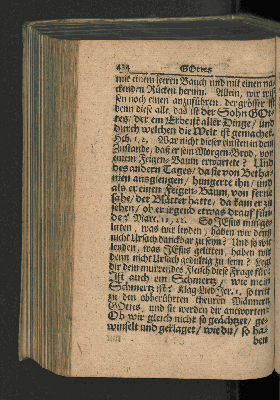 434 GOttes
mit einem leeren Bauch und mit einem na-
ckenden Rücken herum. Allein, wir müs-
sen noch einen anzuführen, der grösser ist
denn diese alle, das ist der Sohn GOt-
tes, der ein Erbe ist aller Dinge/ und
durch welchen die Welt ist gemachet.
Heb. 1, 2. War nicht dieser einsten in dem
Zustande, daß er sein Morgen-Brod, von
einem Feigen-Baum erwartete? Und
des andern Tages/ da sie von Betha-
nien ausgiengen/ hungerte ihn/ und
als er einen Feigen-Baum von ferne
sahe/ der Blätter hatte/ da kam er zu
sehen/ ob er irgend etwas drauf fün-
de? Marc. 11, 12. So JEsus mus
leiden, was wir leiden, haben wir denn
nicht Ursach danckbar zu seyn? Und so wir
leiden, was JEsus gelitten, haben wir
denn nicht Ursach gedultig zu seyn? Lege
dir dem murrenden Fleisch diese Frage für:
Ist auch ein Schmertz/ wie mein
Schmertz ist? Klag-Lied Jer. 1. so tritt
zu den obberührten theuren Männern
GOttes, und sie werden dir antworten:
Ob wir gleich nicht so geächtzet/ ge-
winselt und geklaget/ wie du/ so ha-
ben